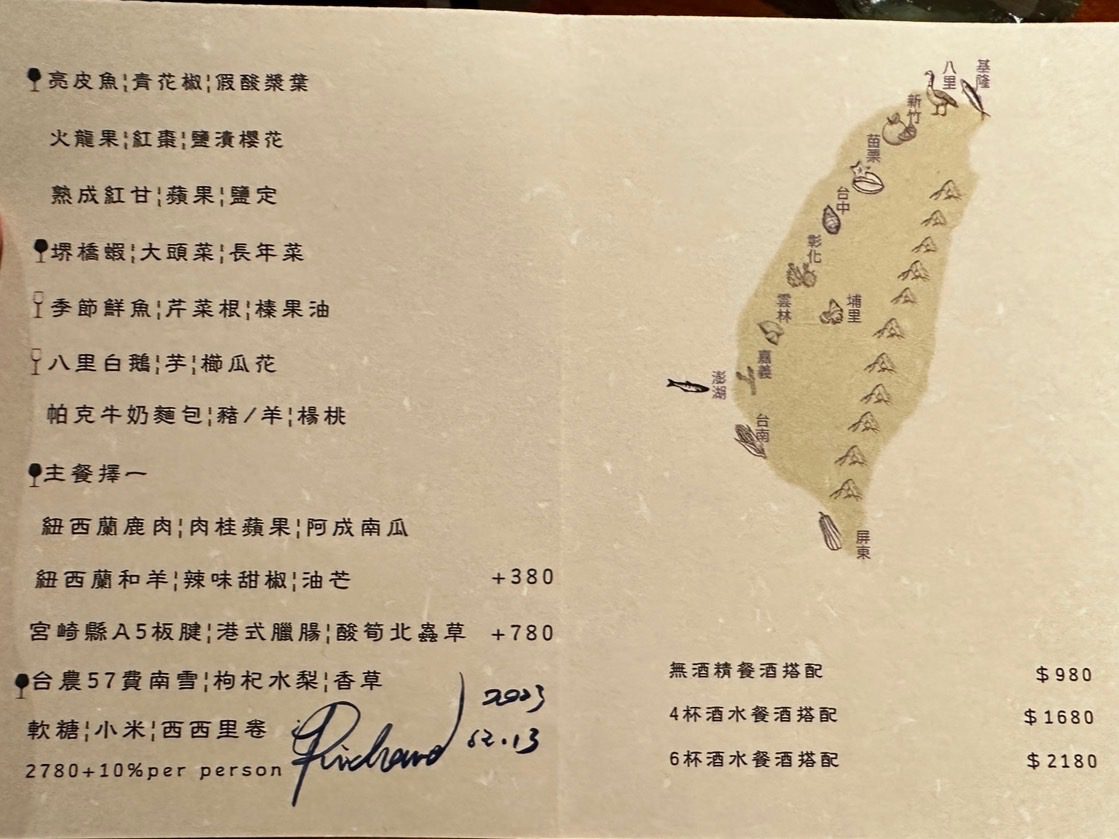 亮皮魚¦青花椒¦假酸漿葉
火龍果¦紅棗¦鹽漬櫻花
熟成紅甘¦蘋果¦鹽定
堺橋蝦¦大頭菜¦長年菜
季節鮮魚¦芹菜根¦榛果油
八里白鵝¦芋¦櫛瓜花
帕克牛奶麵包¦豬/羊¦楊桃
主餐擇一
紐西蘭鹿肉¦肉桂蘋果¦阿成南瓜
紐西蘭和羊¦辣味甜椒¦油芒 +380
宮崎縣A5板腱¦港式臘腸¦酸筍北蟲草 +780
台農57費南雪¦枸杞水梨¦香草
軟糖¦小米¦西西里卷
2780+10%per person
Richard
2023
12.13
基隆
八里
新竹
苗栗
台中
彰化
雲林
埔里
嘉義
澎湖
台南
屏東
無酒精餐酒搭配 $980
4杯酒水餐酒搭配 $1680
6杯酒水餐酒搭配 $2180